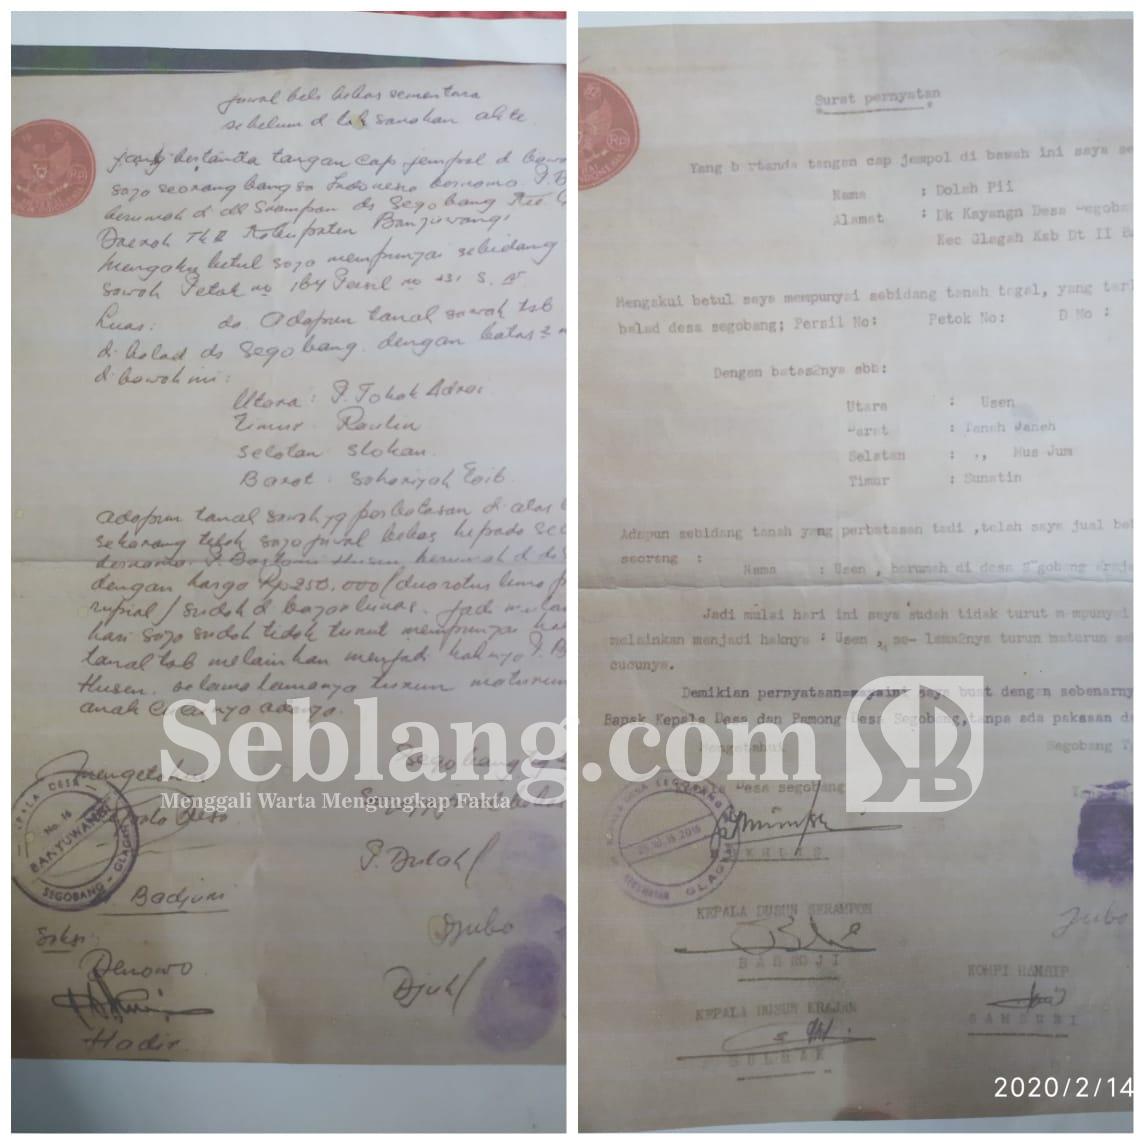 juwal beli bebas sementara
sebelum di laksanakan akte.
yang bertanda tangan cap jempol di bawa
saya seorang bangsa Indonesia bernama P. D
berumah di dk Srampan ds Segobang Kec G
Daerah Tk II Kabupaten Banjuwangi
mengaku betul saja mempunjai sebidang
sawah Petok no 164 Persil no 131 S. IV
Luas: da. Adapun tanah sawah tsb
di balad ds Segobang. dengan batas2 n
di bawah ini:
Utara : P. Tohak Adrai
Timur Raulin
Selatan Slokan.
Barat : Sahariyah Toib.
adapun tanah sawah yg perbatasan di atas
sekarang telah saja juwal bebas kepada se
bernama P. Bastomi Husen berumah di ds
dengan harga Rp 250.000/ dua ratus lima p
rupiah/ sudah di bayar lunas. Jadi mulai
hari saja sudah tidak turut mempunjai ha
tanah tsb melainkan menjadi haknya P. B
Husen. selama lamanya turun maturun
anak cucunya adanya.
Segobang
mengetahui
Kepala Desa
KEPALA DESA
No. 16
BANYUWANGI
SEGOBANG - GLAGAH
P. Dulah
Badjuri
Djubo
Saksi:
Denowo
Djuhl
Hadir
Surat pernyatan
Yang b rtanda tangan cap jempol di bawah ini saya se
Nama : Dolah Pii
Alamat : Dk Kayangn Desa Segoba
Kec Glagah Kab Dt II B
Mengakui betul saya mempunyai sebidang tanah tegal, yang terl
balad desa segobang; Persil No: Petok No: D No :
Dengan batas2nya sbb:
Utara : Usen
Barat : Tanah Janeh
Selatan : ,, Mus Jum
Timur : Sunatin
Adapun sebidang tanah yang perbatasan tadi ,telah saya jual be
seorang :
Nama : Usen , berumah di desa Segobang Kraja
Jadi mulai hari ini saya sudah tidak turut mempunyai
melainkan menjadi haknya : Usen , se- lama2nya turun maturun se
cucunya.
Demikian pernyataan saya ini saya buat dengan sebenarny
Bapak Kepala Desa dan Pamong Desa Segobang,tanpa ada paksaan d
Mengetahui
Segobang T
Kepala Desa segobang
Seblang.com
Menggali Warta Mengungkap Fakta
SB
KEPALA DUSUN SERAMPON
BAHROJI
Jubo
KOMPI HANSIP
SAMSURI
KEPALA DUSUN KRAJAN
2020/2/14